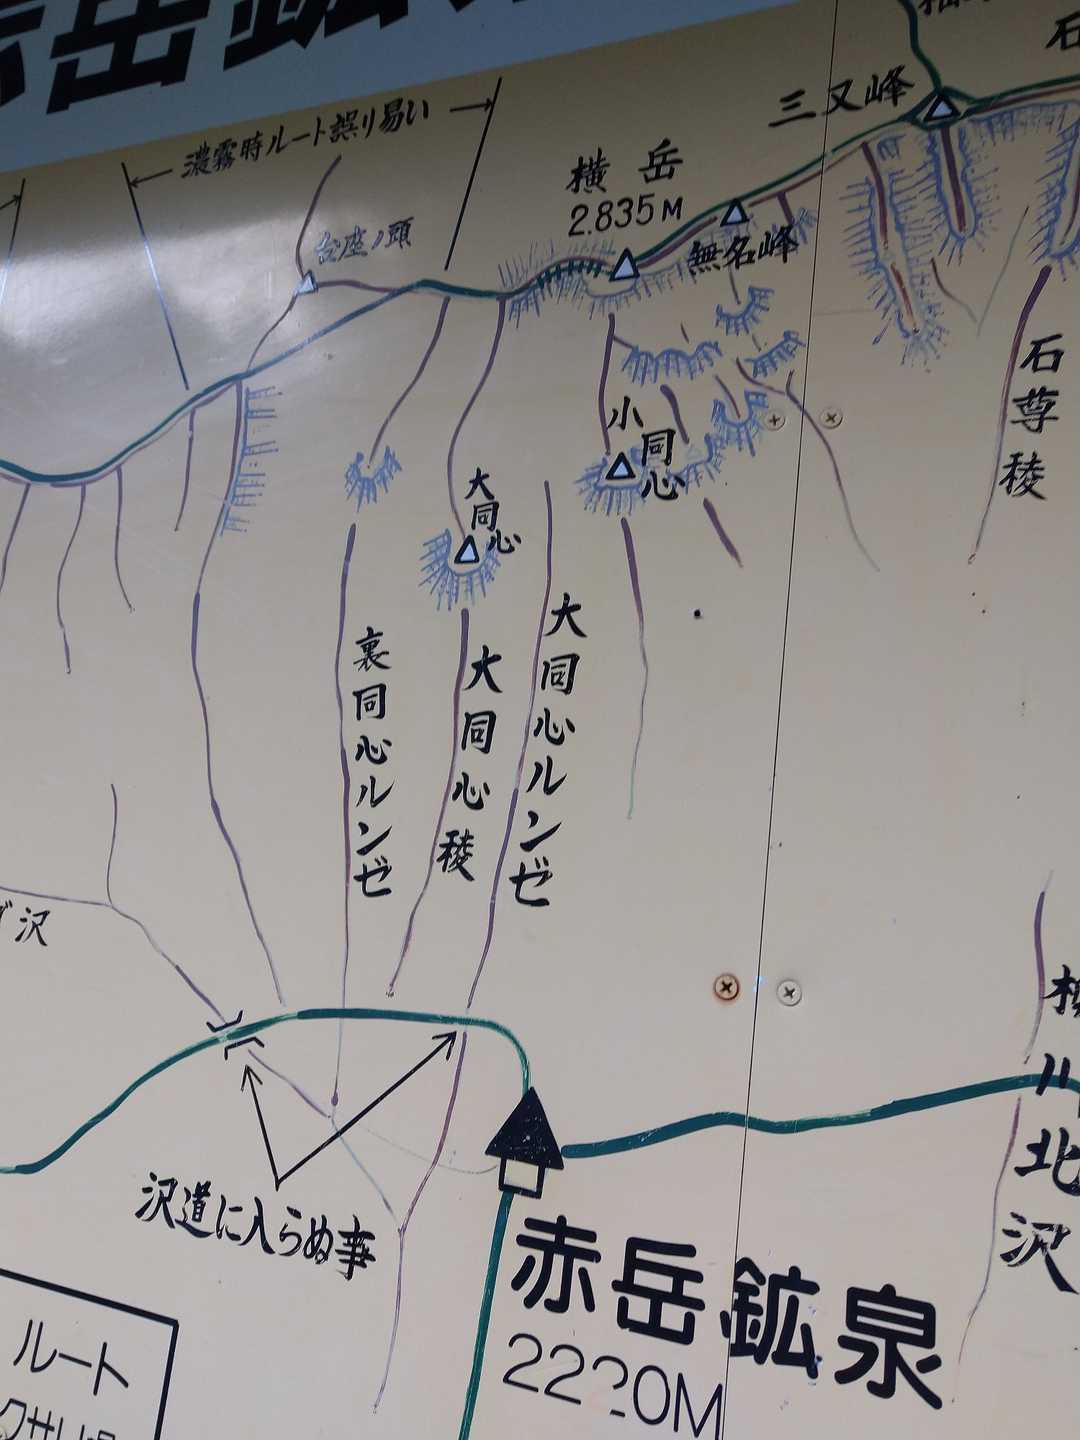 岳鉱
濃霧時ルート誤り易い
三又峰
石
横岳
2.835M
台座ノ頭
無名峰
石尊稜
小同心
大同心
大同心ルンゼ
裏同心ルンゼ
大同心稜
沢
川北沢
沢道に入らぬ事
赤岳鉱泉
2220M
ルート